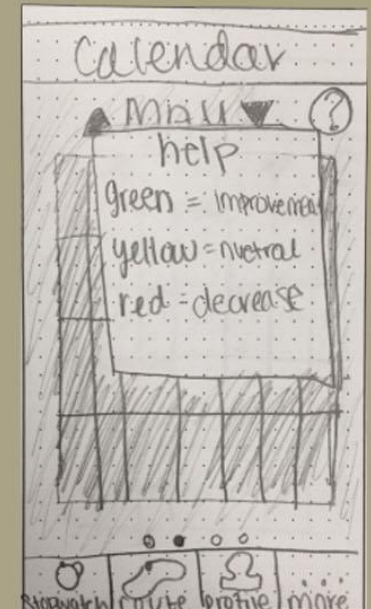 Calendar
?
help
green = improvement
yellow = nuetral
red - decrease
stopwatch route profile more